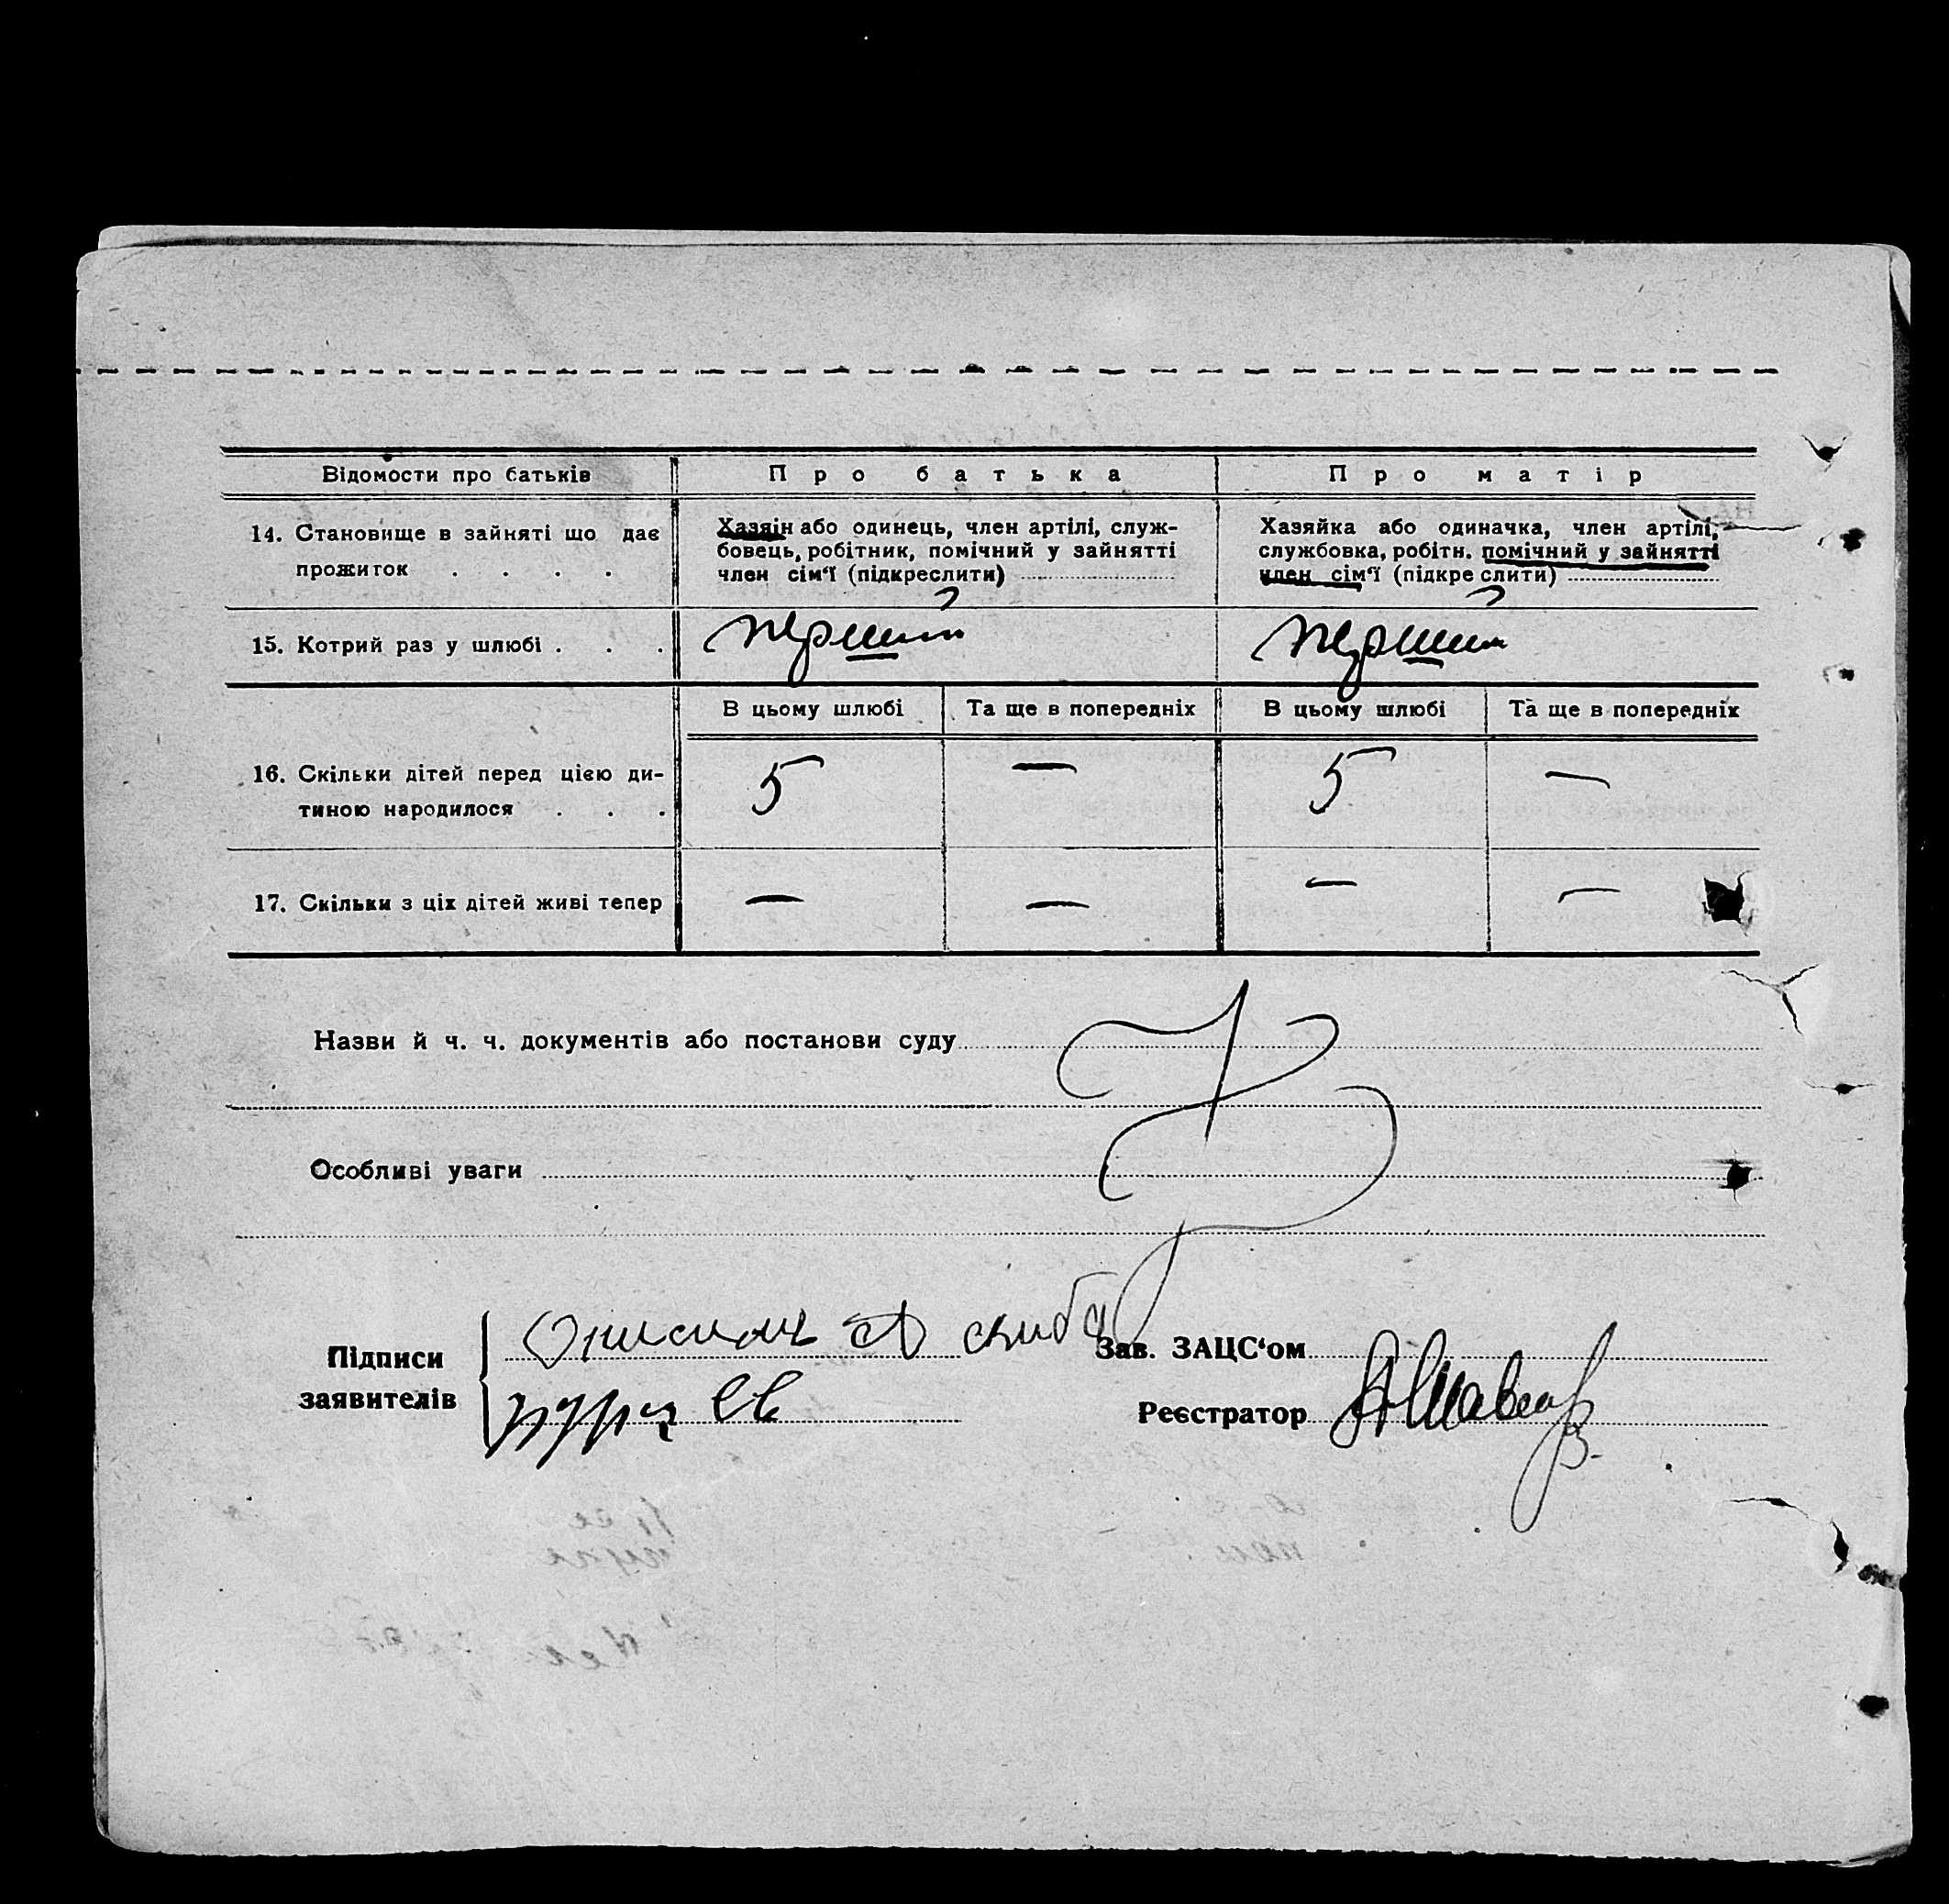 Відомости про батьків Про батька Про матір
14. Становище в зайняті що дає
прожиток . . . .
Хазяін або одинець, член артілі, служ-
бовець, робітник, помічний у зайнятті
член сім‘ї (підкреслити)
Хазяйка або одиначка, член артілі,
службовка, робітн. помічний у зайнятті
член сім‘ї (підкреслити)
15. Котрий раз у шлюбі . . . перший перший
В цьому шлюбі Та ще в попередніх В цьому шлюбі Та ще в попередніх
16. Скільки дітей перед цією ди-
тиною народилося . . . 5 — 5 —
17. Скільки з ціх дітей живі тепер — — — —
Назви й ч. ч. документів або постанови суду
Особливі уваги
Підписи
заявителів
Зав. ЗАЦС‘ом
Реєстратор